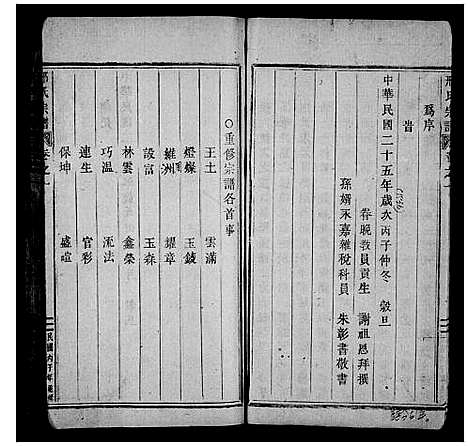 爲序
旹
中華民國二十五年歲次丙子仲冬 穀旦
眷晚教員貢生 謝祖恩拜撰
孫婿永嘉雜稅科員 朱彰書敬書
○重修宗譜各首事
王土 雲滿
燈燦 玉鼓
維洲 耀章
設富 玉森
林雲 鑫榮
巧溫 流法
連生 官彩
保坤 盛喧
氏宗譜